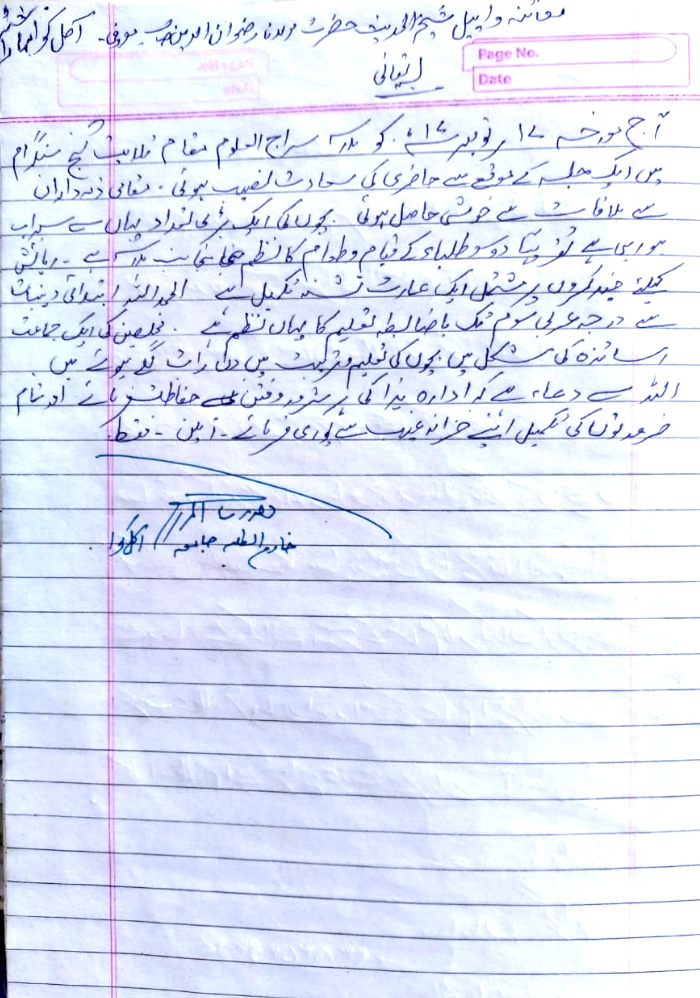 معائنہ و اپیل شیخ الحدیث حضرت مولانا رضوان الدین صاحب معروفی۔ اکل کوا مہاراشٹر
Page No.
Date
باسمہ تعالیٰ
آج مورخہ ۱۷ نومبر ۲۰۱۷ء کو مدرسہ سراج العلوم مقام ولایت گنج سنگرام
میں ایک جلسہ کے موقع سے حاضری کی سعادت نصیب ہوئی۔ مقامی ذمہ داران
سے ملاقات سے خوشی حاصل ہوئی۔ بچوں کی ایک بڑی تعداد یہاں سے سیراب
ہو رہی ہے تقریباً دو سو طلباء کے قیام و طعام کا نظم منجانب مدرسہ ہے۔ رہائش
کیلئے چند کمروں پر مشتمل ایک عمارت تشنہ تکمیل ہے الحمد للہ ابتدائی دینیات
سے درجہ عربی سوم تک باضابطہ تعلیم کا یہاں نظم ہے۔ مخلصین کی ایک جماعت
اساتذہ کی شکل میں بچوں کی تعلیم و تربیت میں دن رات لگے ہوئے ہیں
اللہ سے دعاء ہے کہ ادارہ ہذا کی ہر شرور و فتن سے حفاظت فرمائے اور تمام
ضرورتوں کی تکمیل اپنے خزانہ غیب سے پوری فرمائے۔ آمین۔ فقط
خادم الطلبہ جامعہ اکل کوا